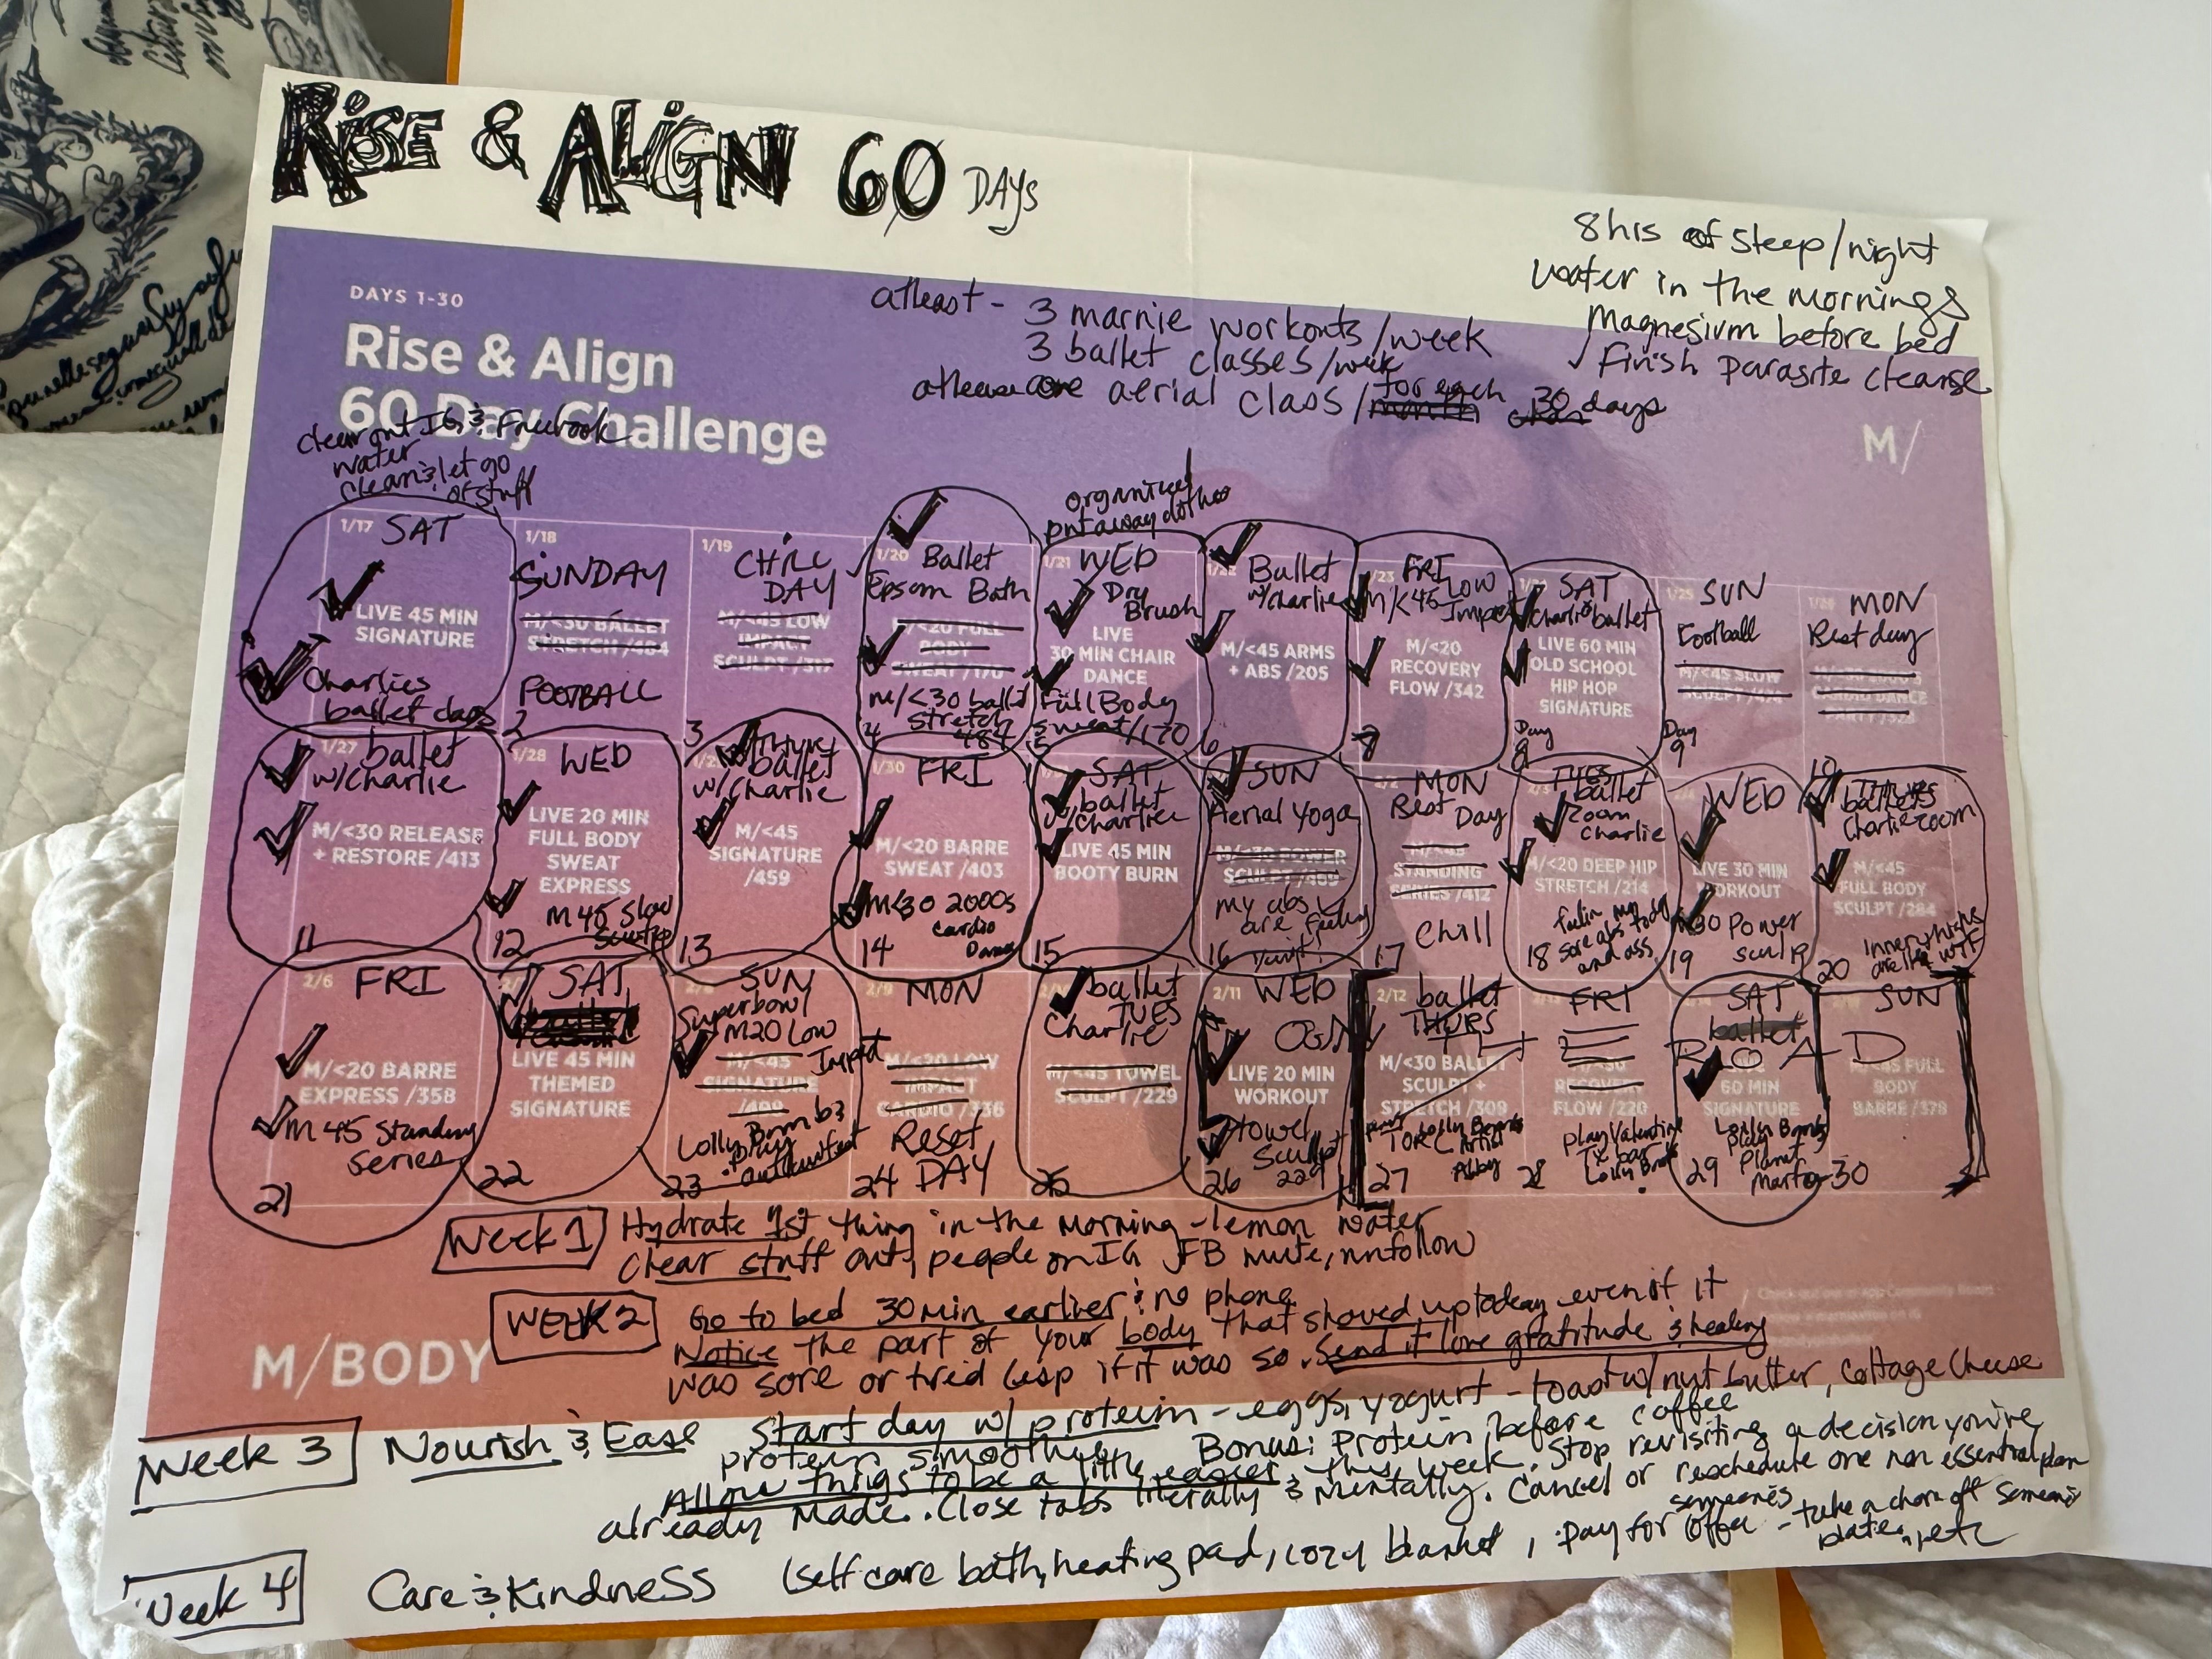 RISE & ALIGN 60 DAYS
8 hrs of sleep/night
water in the mornings
magnesium before bed
✓ finish parasite cleanse
atleast - 3 marnie workouts/week
3 ballet classes/week
one aerial class/for each 30 days
DAYS 1-30
Rise & Align
60 Day Challenge
M/
clear out IG & Facebook
water
clean & let go
of stuff
1/17 SAT
✓ LIVE 45 MIN
SIGNATURE
✓ Charlies
ballet class
1/18
SUNDAY
M/<30 BALLET
STRETCH /484
FOOTBALL
2
1/19
CHILL
DAY
M/<45 LOW
IMPACT
SCULPT /317
3
✓
1/20 Ballet
Epsom Bath
M/<20 FULL
BODY
SWEAT /170
✓
M/<30 ballet
stretch
484
4
organized
put away clothes
1/21 WED
✓ Dry
Brush
LIVE
30 MIN CHAIR
DANCE
✓ Full Body
sweat/170
5
✓
Ballet
w/Charlie
✓ M/<45 ARMS
+ ABS /205
6
1/23 FRI
✓ M/<45 Low
Impact
✓ M/<20
RECOVERY
FLOW /342
7
SAT
✓ Charlie ballet
✓ LIVE 60 MIN
OLD SCHOOL
HIP HOP
SIGNATURE
Day
8
1/25 SUN
Football
M/<45 SLOW
SCULPT /474
Day
9
1/26 MON
Rest day
M/<30 2000'S
CARDIO DANCE
PARTY /328
10
1/27 ballet
✓ w/Charlie
✓ M/<30 RELEASE
+ RESTORE /413
11
1/28 WED
✓ LIVE 20 MIN
FULL BODY
SWEAT
EXPRESS
✓ M 45 Slow
Sculpt
12
✓ ballet
w/Charlie
✓ M/<45
SIGNATURE
/459
13
1/30 FRI
✓ M/<20 BARRE
SWEAT /403
✓ M<30 2000s
Cardio
Dance
14
SAT
✓ ballet
w/Charlie
✓ LIVE 45 MIN
BOOTY BURN
15
✓ SUN
Aerial Yoga
M/<30 POWER
SCULPT /455
my abs
are feeling
16
2/2 MON
Rest
Day
M/<45
STANDING
SERIES /412
Chill
17
2/3 TUES
ballet
✓ zoom
Charlie
✓ M/<20 DEEP HIP
STRETCH /214
feelin my
sore abs today
and ass
18
WED
✓ LIVE 30 MIN
WORKOUT
✓ M30 Power
Sculpt
19
✓ THURS
ballet
Charlie zoom
✓ M/<45
FULL BODY
SCULPT /284
Inner thighs
are like WTF
20
2/6 FRI
✓ M/<20 BARRE
EXPRESS /358
✓ M 45 Standing
series
21
✓ SAT
LIVE 45 MIN
THEMED
SIGNATURE
22
SUN
Superbowl
✓ M20 Low
Impact
M/<45
SIGNATURE
/409
Lolly Bombs
play
23
2/9 MON
M/<20 LOW
IMPACT
CARDIO /336
Reset
DAY
24
✓ ballet
TUES
Charlie
M/<45 TOWEL
SCULPT /229
25
2/11 WED
✓ LIVE 20 MIN
WORKOUT
✓ Towel
Sculpt
229
26
ON THE ROAD
2/12 ballet
THURS
M/<30 BALLET
SCULPT +
STRETCH /309
Lolly Bombs
27
FRI
M/<30
RECOVERY
FLOW /220
play Valentine
Tx bar
Lolly Bombs
28
SAT
ballet
✓ 60 MIN
SIGNATURE
Lolly Bombs
play
Planet
Marfa
29
SUN
M/<45 FULL
BODY
BARRE /378
30
Week 1 Hydrate 1st thing in the morning - lemon water
Clear stuff out, people on IG FB mute, unfollow
WEEK 2 Go to bed 30 min earlier & no phone
Notice the part of your body that showed up today even if it
was sore or tired esp if it was so. Send it love gratitude & healing
M/BODY
Week 3 Nourish & Ease Start day w/ protein - eggs, yogurt - toast w/ nut butter, cottage cheese
protein smoothies Bonus: protein before coffee
Allow things to be a little easier this week. Stop revisiting a decision you've
already made. Close tabs literally & mentally. Cancel or reschedule one non essential plan
Week 4 Care & Kindness (self care bath, heating pad, cozy blanket, pay for someone's coffee - take a chore off someone's
plate, etc